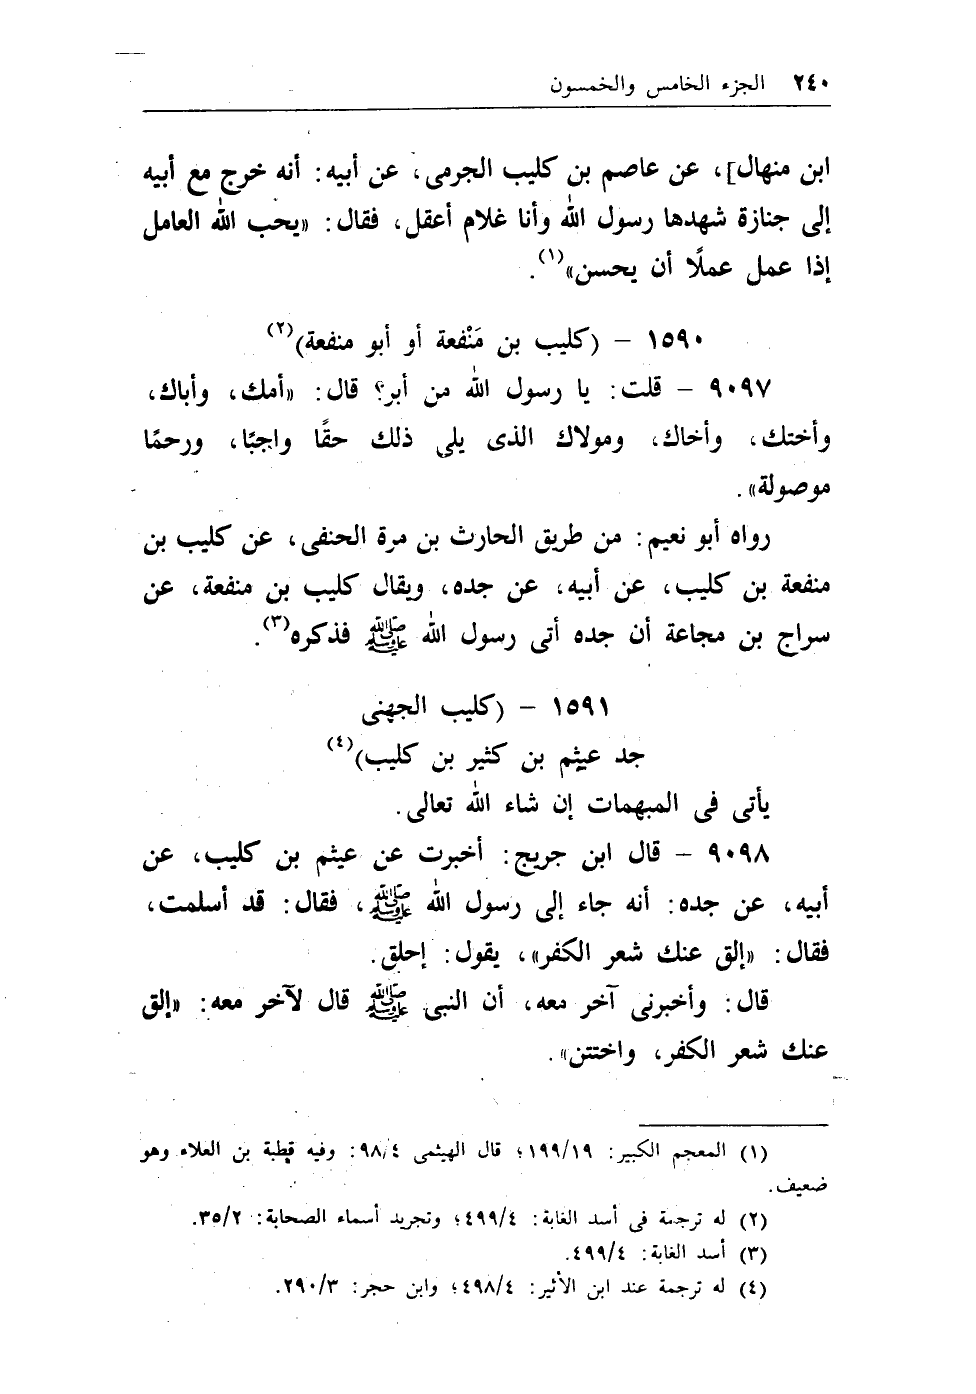 ٢٤٠ الجزء الخامس والخمسون
ابن منهال]، عن عاصم بن كليب الجرمى، عن أبيه: أنه خرج مع أبيه
إلى جنازة شهدها رسول الله وأنا غلام أعقل، فقال: «يحب الله العامل
إذا عمل عملًا أن يحسن»(١).
١٥٩٠ – (كليب بن مَنْفعة أو أبو منفعة)(٢)
٩٠٩٧ – قلت: يا رسول الله من أبر؟ قال: «أمك، وأباك،
وأختك، وأخاك، ومولاك الذى يلى ذلك حقًا واجبًا، ورحمًا
موصولة».
رواه أبو نعيم: من طريق الحارث بن مرة الحنفى، عن كليب بن
منفعة بن كليب، عن أبيه، عن جده، ويقال كليب بن منفعة، عن
سراج بن مجاعة أن جده أتى رسول الله ﷺ فذكره(٣).
١٥٩١ – (كليب الجهنى
جد عيثم بن كثير بن كليب)(٤)
يأتى فى المبهمات إن شاء الله تعالى.
٩٠٩٨ – قال ابن جريج: أخبرت عن عيثم بن كليب، عن
أبيه، عن جده: أنه جاء إلى رسول الله ﷺ، فقال: قد أسلمت،
فقال: «إلق عنك شعر الكفر»، يقول: إحلق.
قال: وأخبرنى آخر معه، أن النبى ﷺ قال لآخر معه: «إلق
عنك شعر الكفر، واختتن».
(١) المعجم الكبير: ١٩٩/١٩؛ قال الهيثمى ٩٨/٤: وفيه قطبة بن العلاء وهو
ضعيف.
(٢) له ترجمة فى أسد الغابة: ٤٩٩/٤؛ وتجريد أسماء الصحابة: ٣٥/٢.
(٣) أسد الغابة: ٤٩٩/٤.
(٤) له ترجمة عند ابن الأثير: ٤٩٨/٤؛ وابن حجر: ٢٩٠/٣.